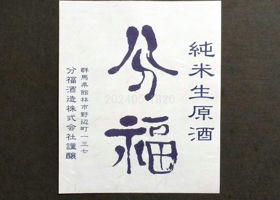 純米生原酒
分福
群馬県館林市野辺町一三七
分福酒造株式会社謹醸